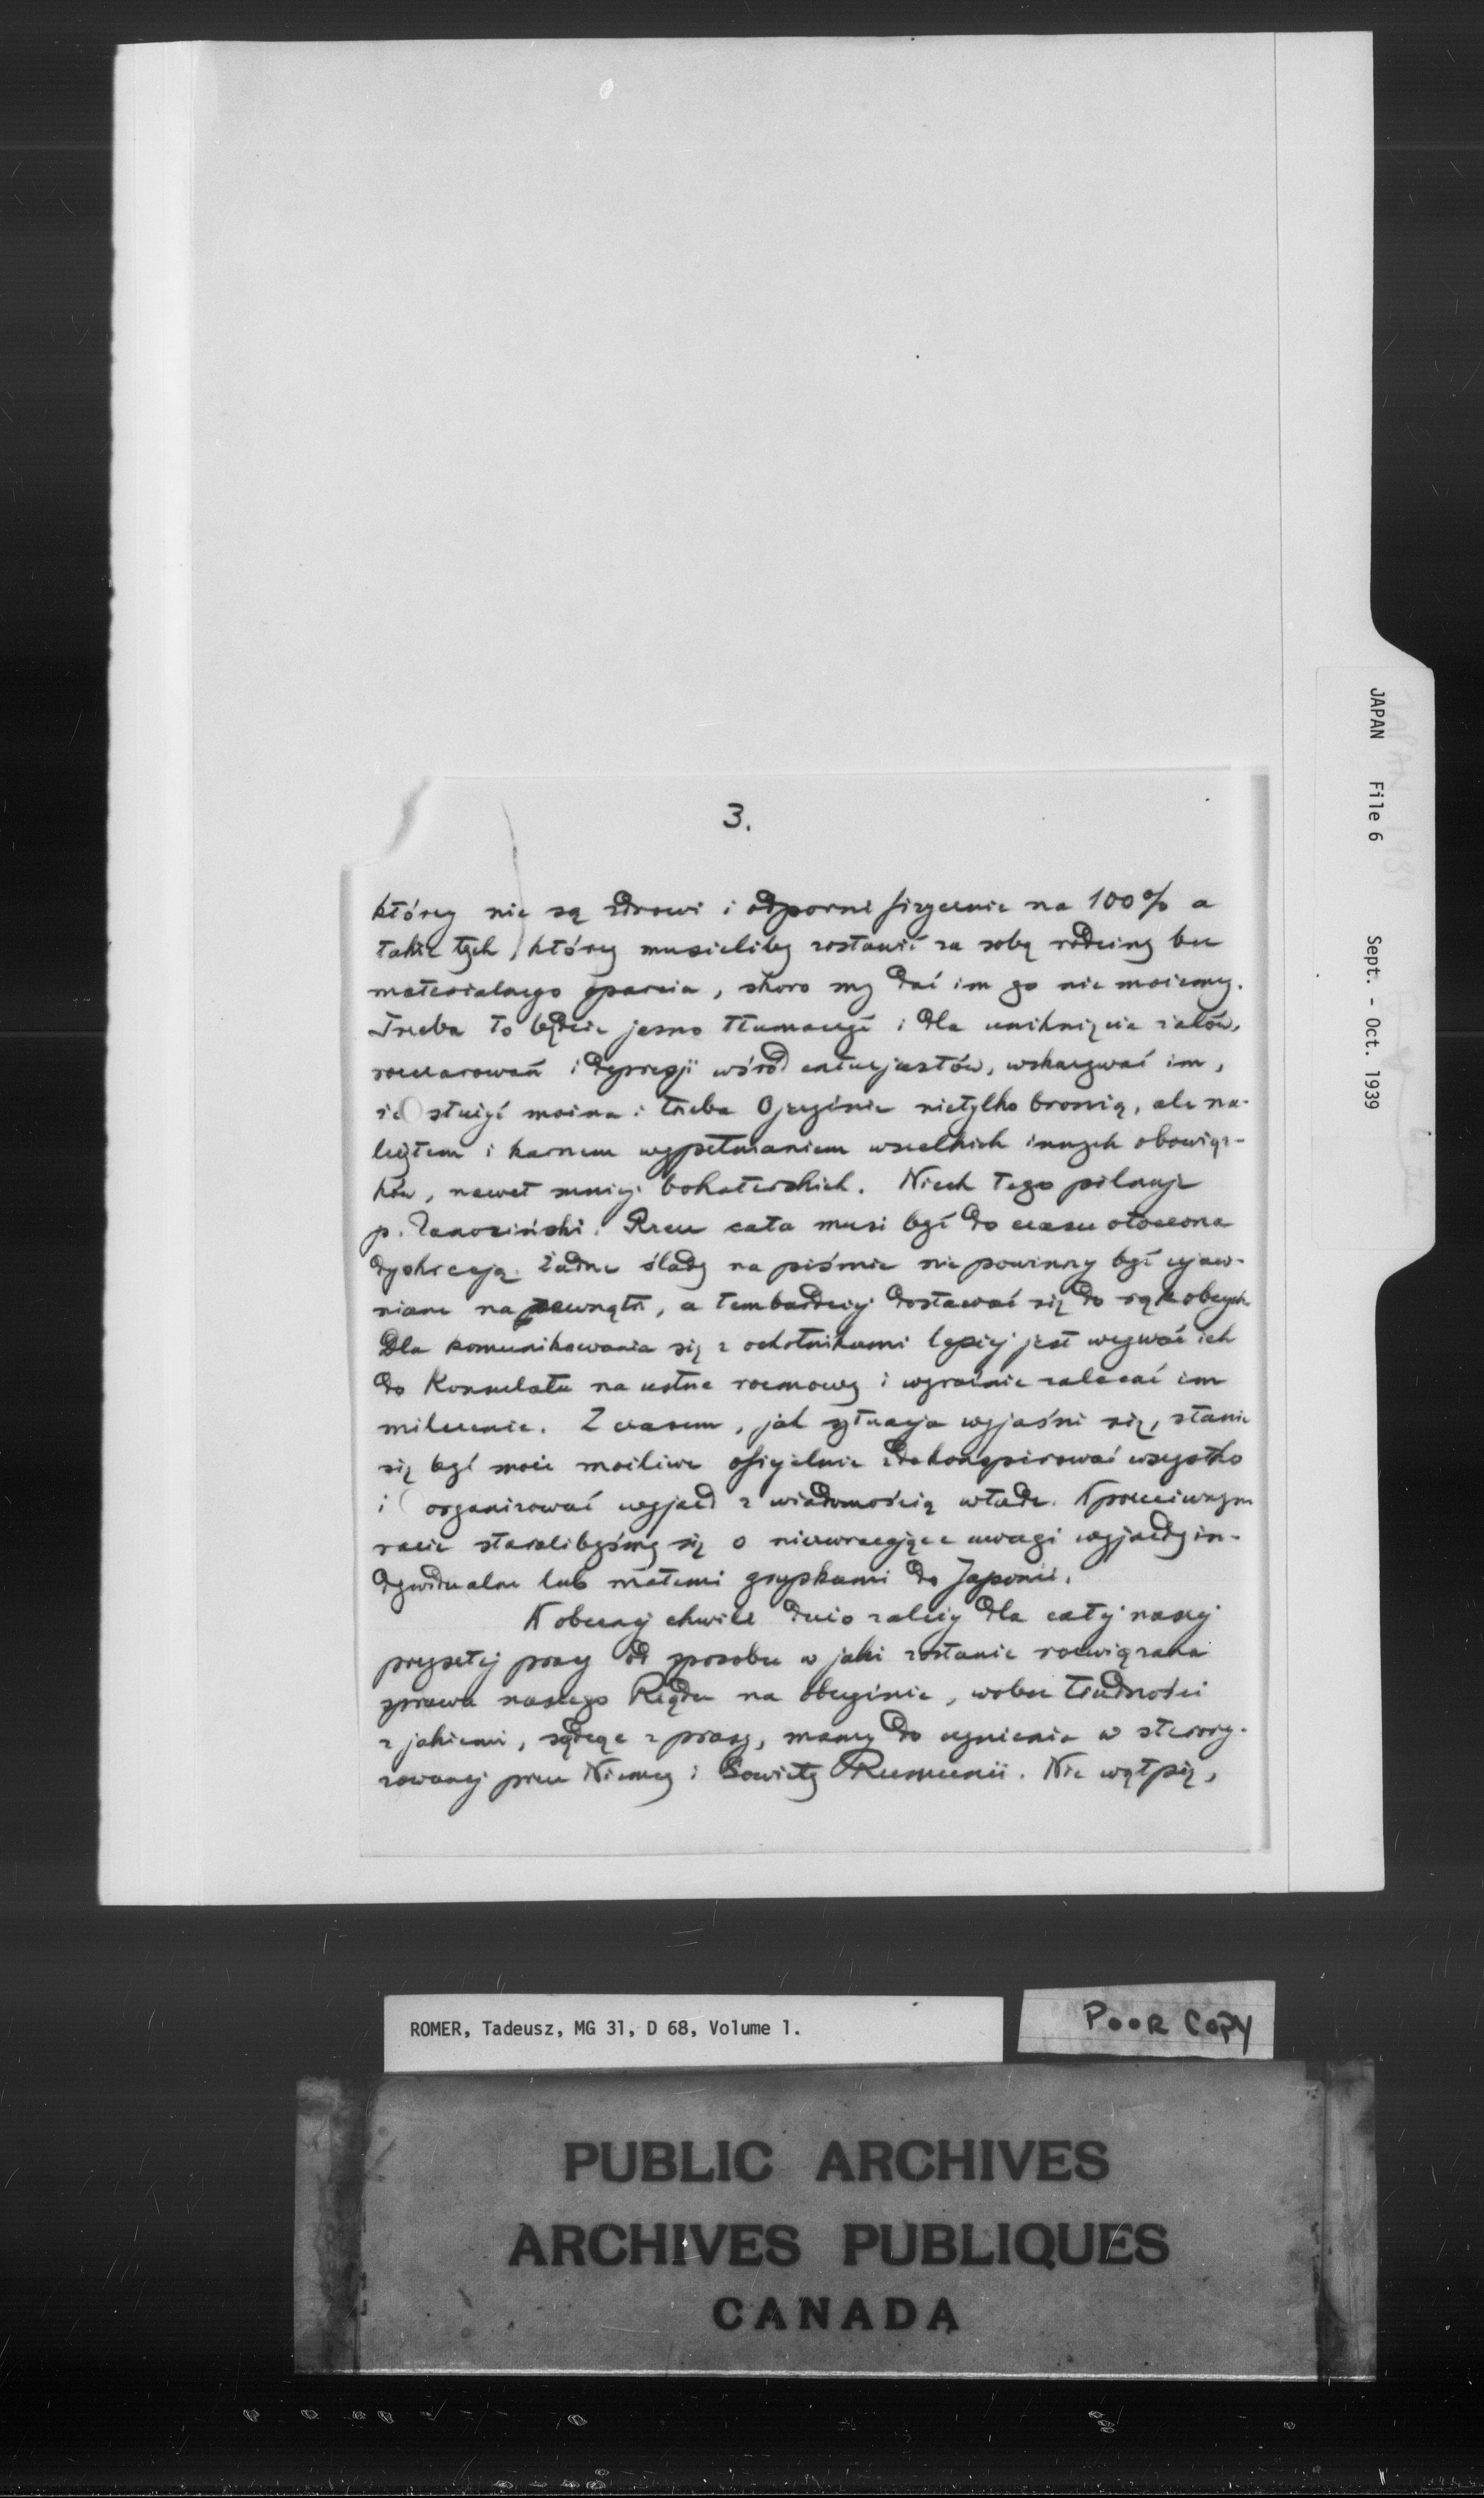 3.
którzy nie są zdrowi i odporni fizycznie na 100% a
także tych, którzy musieliby zostawić za sobą rodziny bez
materialnego oparcia, skoro my dać im go nie możemy.
Trzeba to będzie jasno tłumaczyć i dla uniknięcia żalów,
rozczarowań i depresji wśród entuzjastów, wskazywać im,
że służyć można i trzeba Ojczyźnie nietylko bronią, ale na-
leżytem i karnem wypełnianiem wszelkich innych obowiąz-
ków, nawet mniej bohaterskich. Niech tego pilnuje
p. Rzecz cała musi być do czasu otoczona
dyskrecją. Żadne ślady na piśmie nie powinny być ujaw-
niane na zewnątrz, a tembardziej dostawać się do rąk obcych.
Dla komunikowania się z ochotnikami lepiej jest wzywać ich
do Konsulatu na ustne rozmowy i wyraźnie zalecać im
milczenie. Z czasem, jak sytuacja wyjaśni się, stanie
się być może możliwe oficjalnie zdekonspirować wszystko
i organizować wyjazd z wiadomością władz. W przeciwnym
razie staralibyśmy się o niezwracające uwagi wyjazdy in-
dywidualne lub małemi grupkami do Japonii.
W obecnej chwili dużo zależy dla całej naszej
przyszłej pracy od sposobu w jaki zostanie rozwiązana
sprawa naszego Rządu na obczyźnie, wobec trudności
z jakiemi, sądząc z prasy, mamy do czynienia w sterory-
zowanej przez Niemcy i Sowiety Rumunii. Nie wątpię,
JAPAN File 6 Sept. - Oct. 1939
ROMER, Tadeusz, MG 31, D 68, Volume 1.
POOR COPY
PUBLIC ARCHIVES
ARCHIVES PUBLIQUES
CANADA